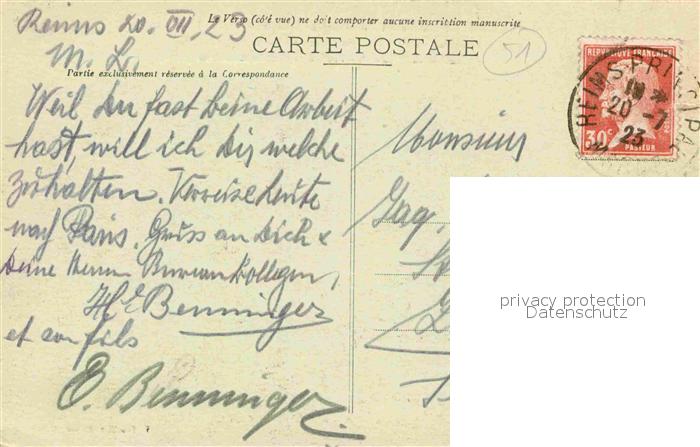 Le Verso (côté vue) ne doit comporter aucune inscription manuscrite
Reims 20. VII. 23
CARTE POSTALE
51
M. L.
Partie exclusivement réservée à la Correspondance
Weil Du fast keine Arbeit
hast, will ich Dir welche
zuhalten. Verreise heute
nach Paris. Gruss an Dich &
Deine Herren Bureaukollegen,
Hce Benninger
et son fils
E. Benninger
Monsieur
Jaq.
RÉPUBLIQUE FRANÇAISE
30c
PASTEUR
REIMS-PRINCIPAL
20-7
23
privacy protection
Datenschutz